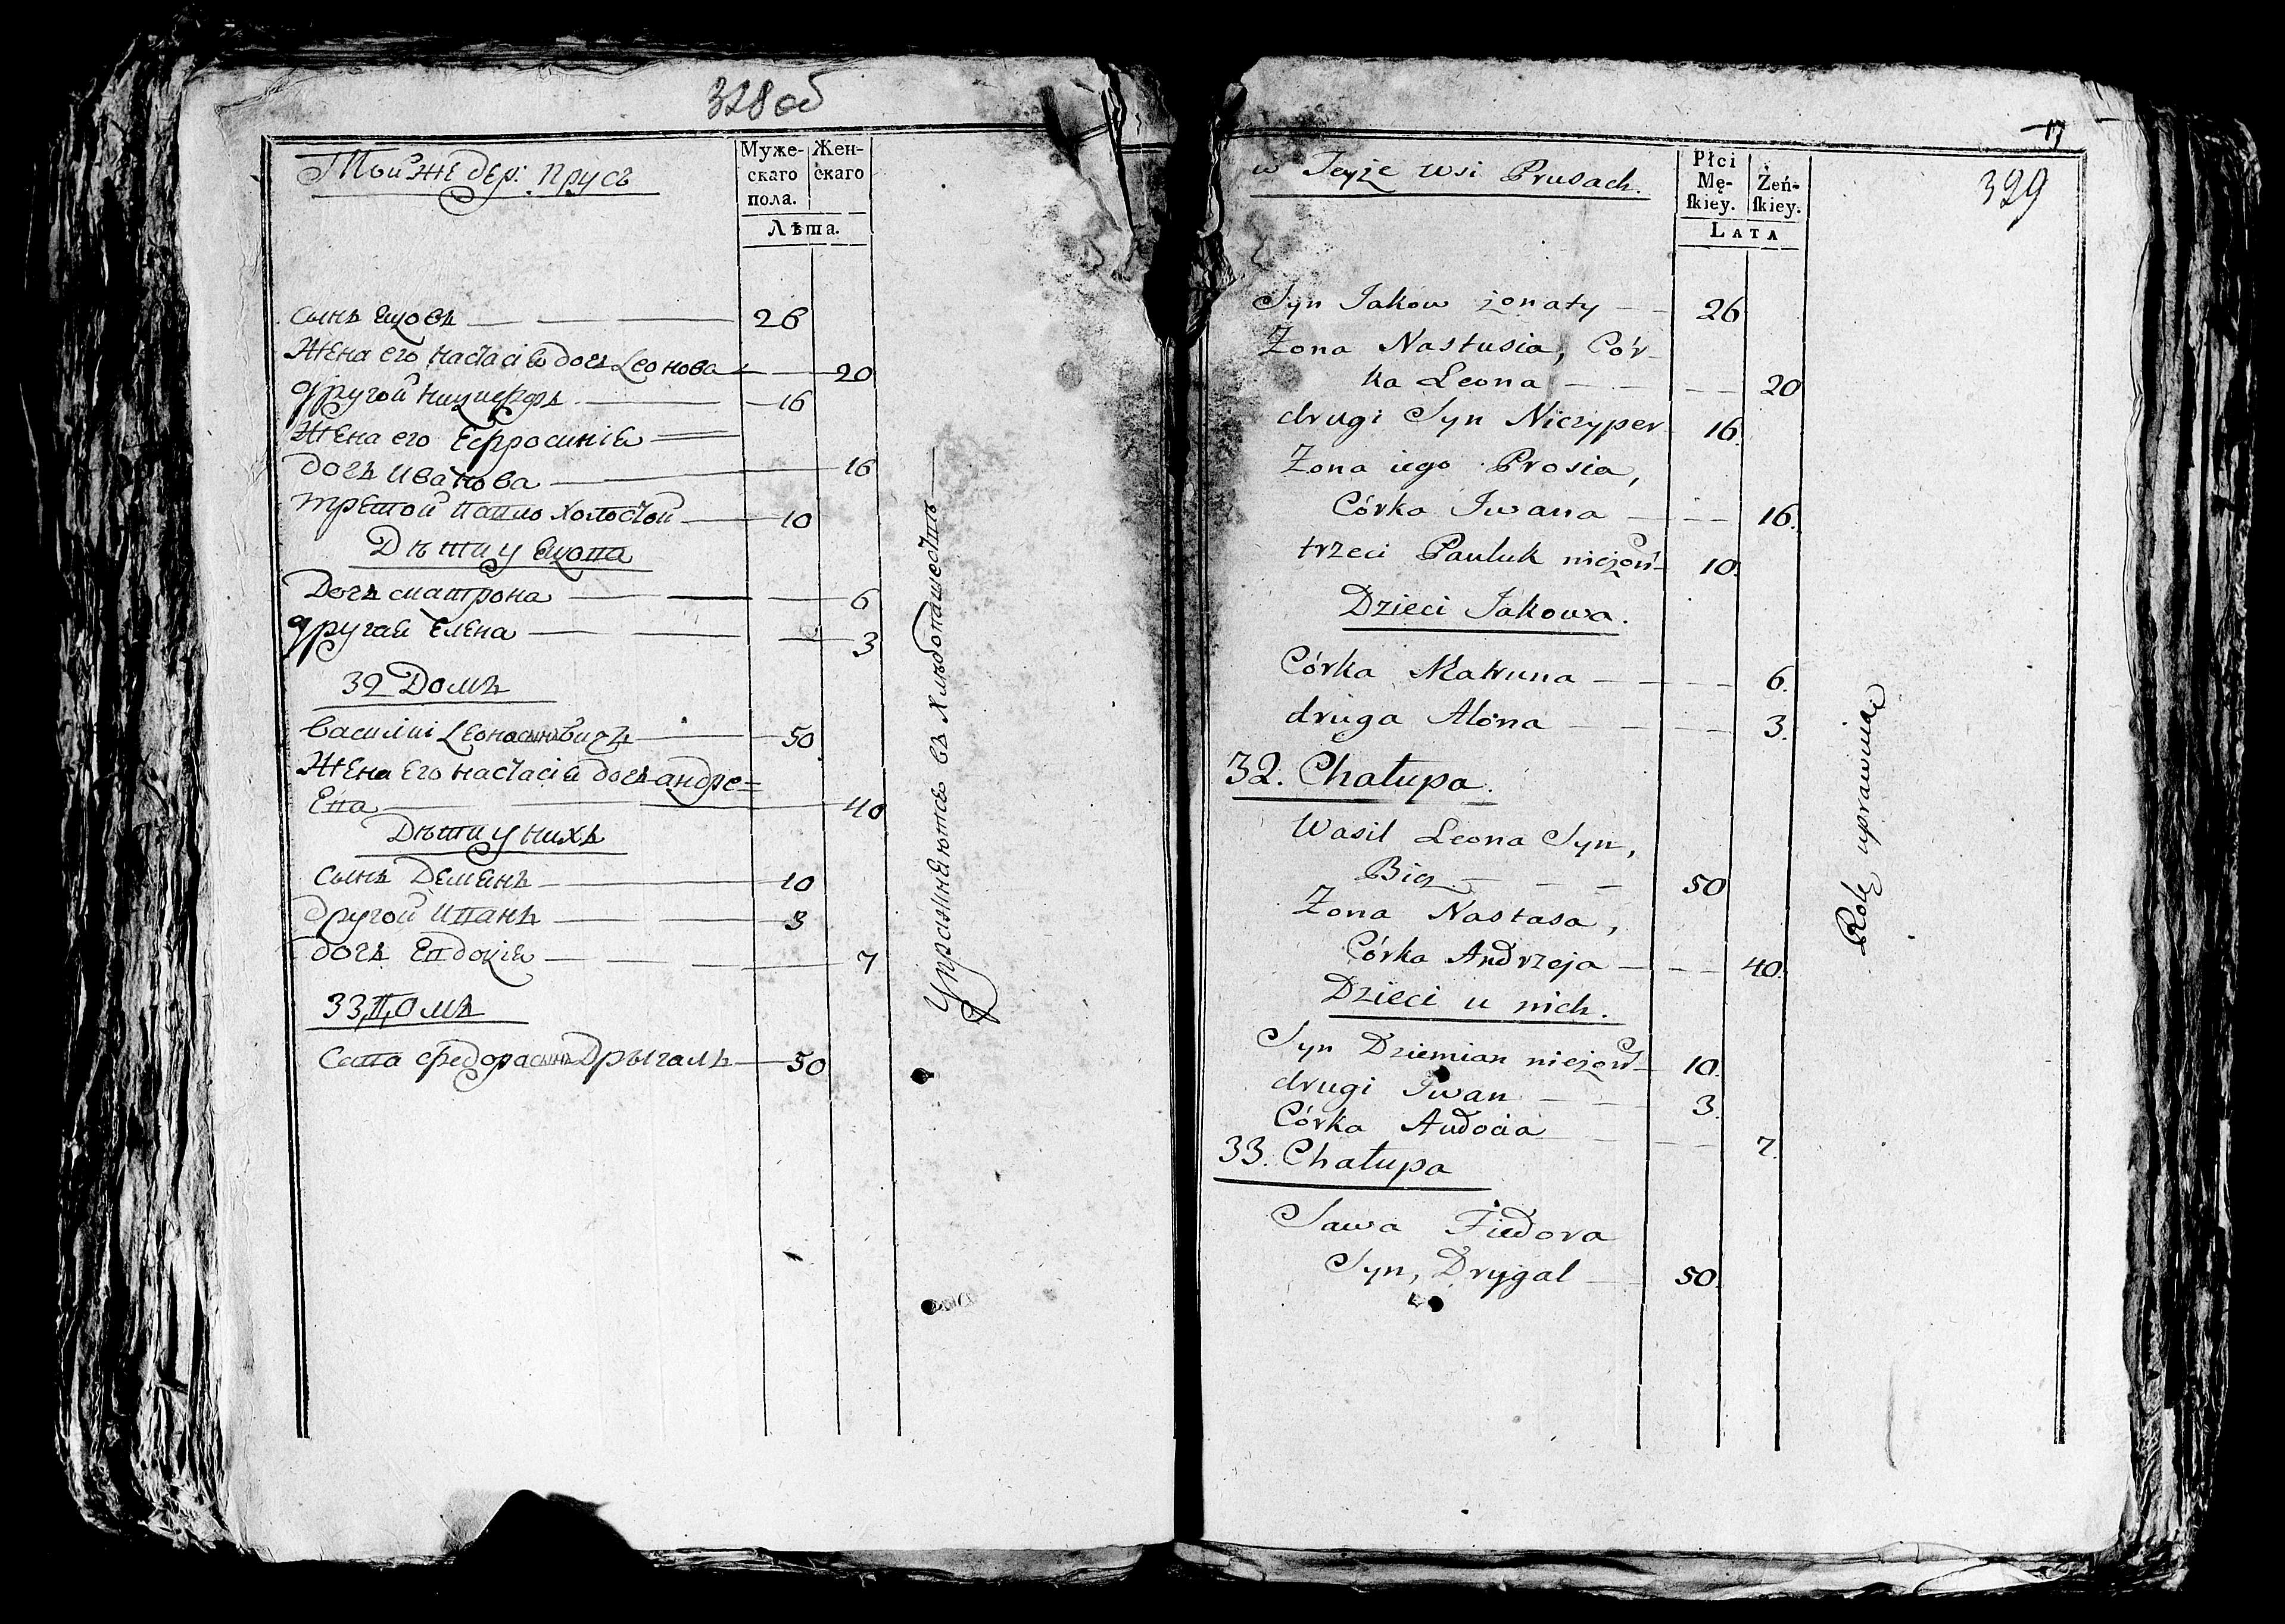 328 об
Той же дер: Прусъ
Муже-
скаго
пола.
Жен-
скаго
Лѣта.
сынъ Яцовъ 26
Жена его настасія дочь Леонова 20
другой ничиперъ 16
Жена его Ефросинія
дочь Иванова 16
третой павло холостой 10
Дѣти у Яцова
Дочь матрона 6
другая елена 3
32 Домъ
василій Леона сынъ бичъ 50
Жена его настасія дочь андре=
ева 40
Дѣти у нихъ
сынъ Демянъ 10
другой иванъ 3
дочь евдокія 7
33 Домъ
Сава федора сынъ Дрыгаль 50
Упражняются въ хлѣбопашествѣ
17
329
w Teyże wsi Prusach.
Płci
Mę-
skiey.
Żeń-
skiey.
LATA
Syn Jakow żonaty 26
Żona Nastusia, Cór-
ka Leona 20
drugi Syn Niczyper 16.
Żona iego Prosia,
Córka Iwana 16.
trzeci Pauluk nieżon 10.
Dzieci Jakowa.
Córka Matruna 6.
druga Alóna 3.
32. Chałupa.
Wasil Leona Syn,
Bicz 50
Żona Nastasa,
Córka Andrzeja 40.
Dzieci u nich.
Syn Dziemian nieżon 10.
drugi Iwan 3.
Córka Audocia 7.
33. Chałupa
Sawa Fiedora
Syn, Drygal 50.
Rolę uprawiaią